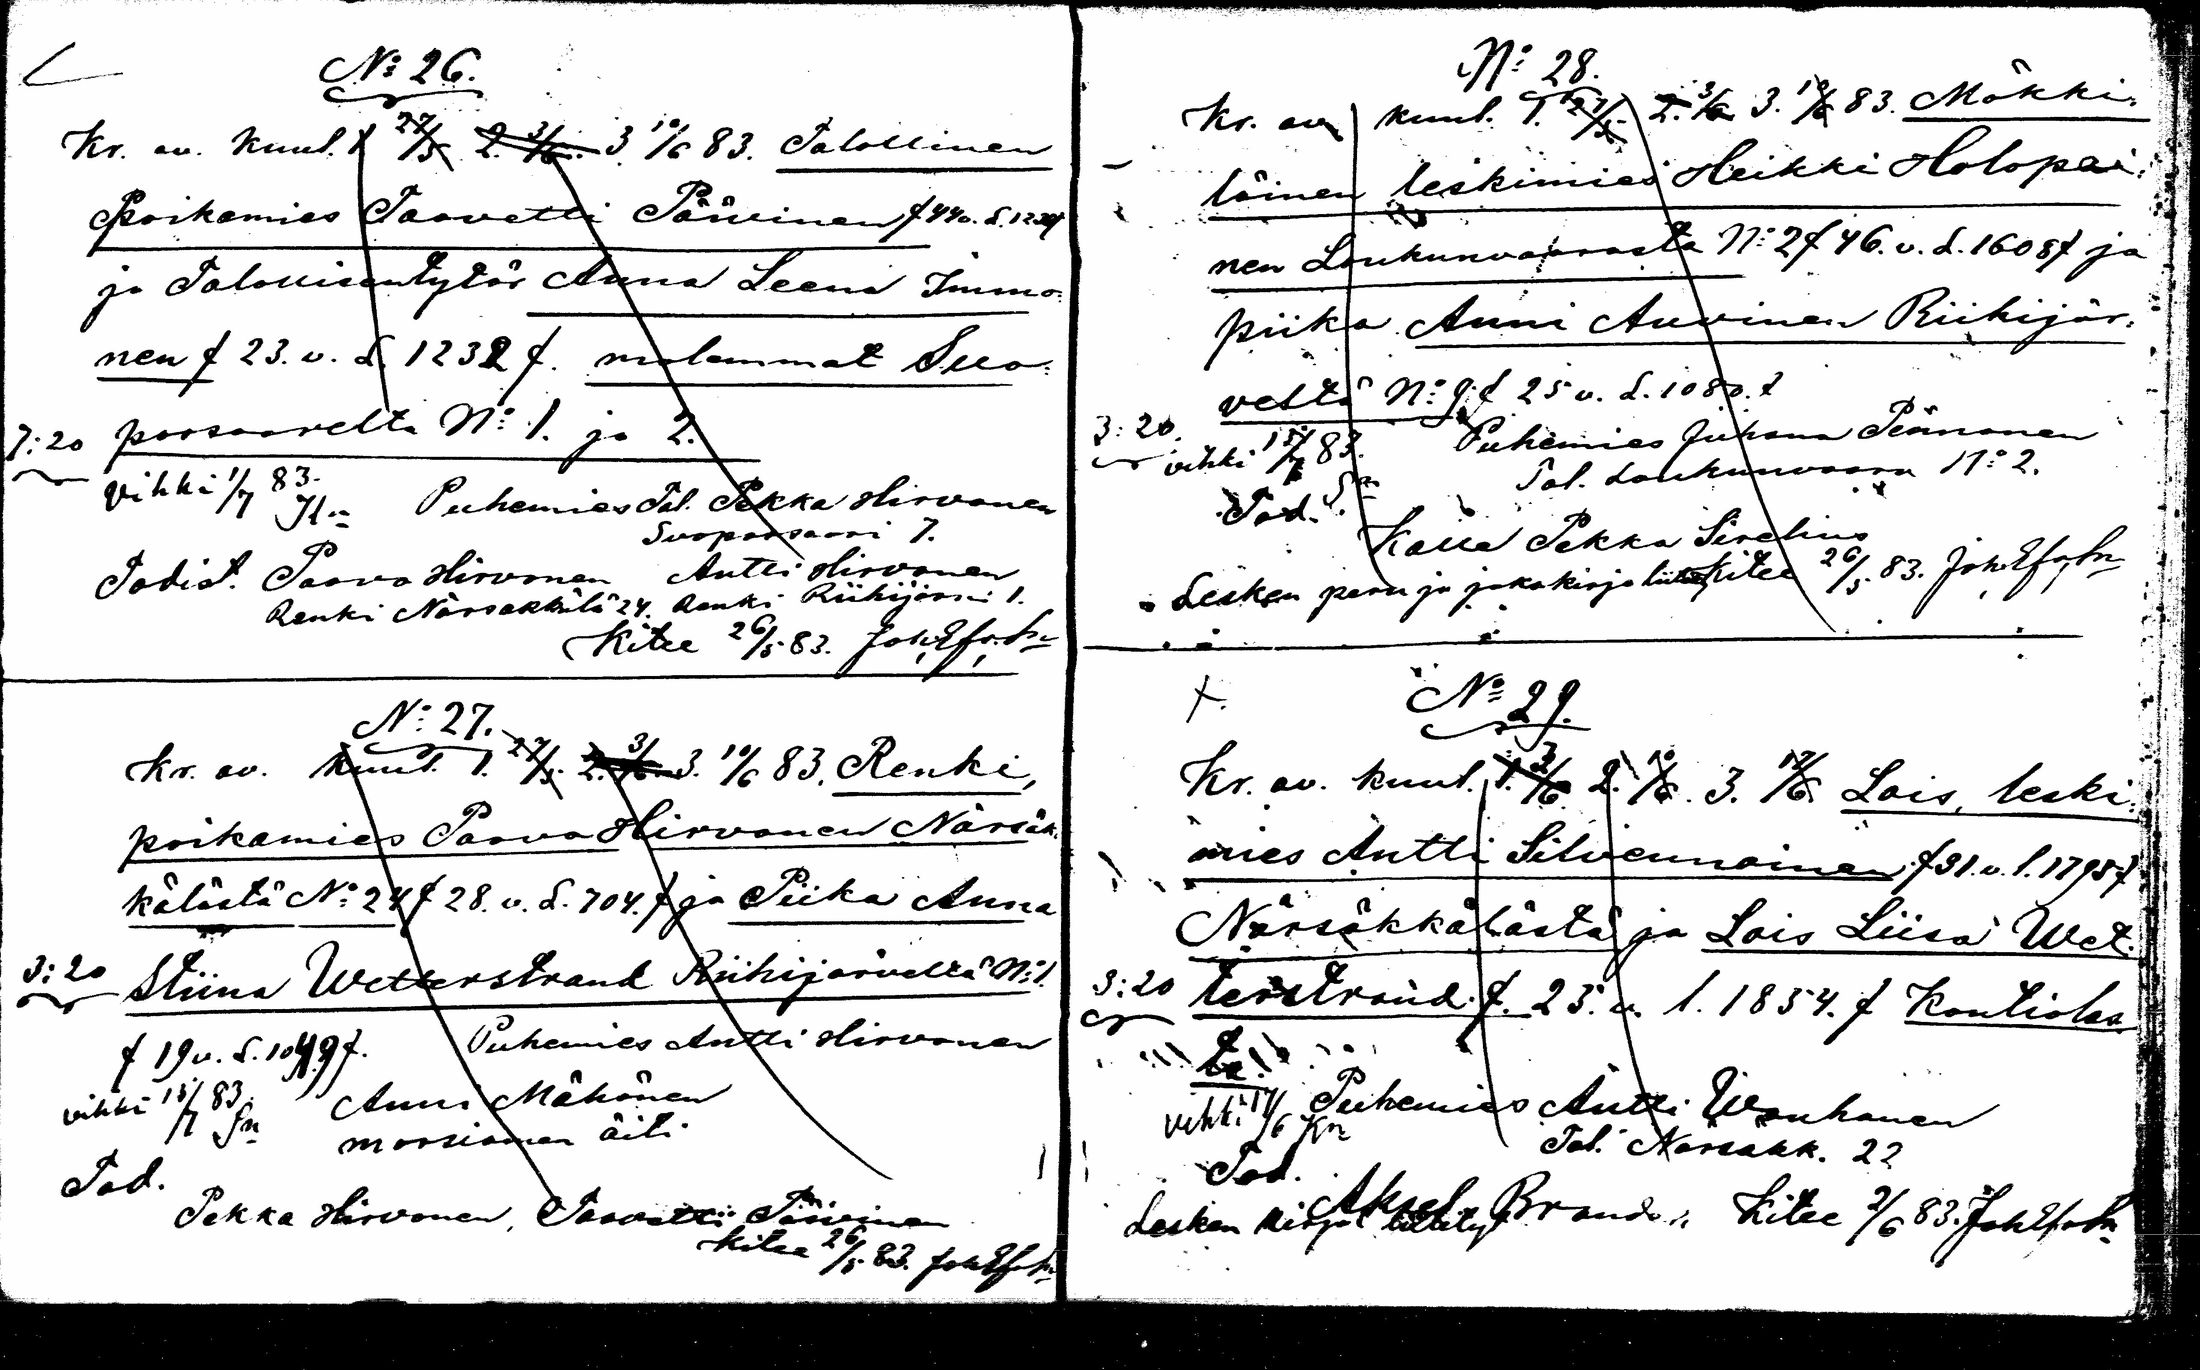 N:o 26.
Kr. av. kuul. 1 27/5 2. 3/6 3. 10/6 83. Talollinen
Poikamies Taavetti Päivinen f 44 v. S. 1232 f
ja Talollisentytär Anna Leena Immo-
nen f 23. v. S. 1232 f. molemmat Suo-
porsaarelta N:o 1. ja 2.
7:20
vihki 1/7 83.
Puhemies Tal. Pekka Hirvonen
Suoporsaari 7.
Todist. Paavo Hirvonen Antti Hirvonen
Renki Närsäkkälä 24. Renki Riihijärvi 1.
Kitee 26/5 83.
N:o 27.
Kr. av. kuul. 1. 27/5 2. 3/6 3. 10/6 83. Renki,
poikamies Paavo Hirvonen Närsäk-
kälästä N:o 24 f 28. v. S. 704. f ja Piika Anna
3:20 Stiina Wetterstrand Riihijärveltä N:o 1.
f 19 v. S. 1049 f. Puhemies Antti Hirvonen
vihki 15/7 83. Sn
Anni Mähönen
morsiamen äiti
Tod.
Pekka Hirvonen, Taavetti Päivinen
Kitee 26/5 83.
N:o 28.
Kr. av. kuul. 1. 27/5 2. 3/6 3. 10/6 83. Mökki-
läinen leskimies Heikki Holopai-
nen Loukunvaarasta N:o 2 f 46. v. S. 1608 f ja
piika Anni Auvinen Riihijär-
veltä N:o 9. f 25 v. S. 1080. f
3:20.
vihki 15/7 83. Sn
Puhemies Juhana Pennonen
Tal. Loukunvaara N:o 2.
Tod.
Kalle Pekka Sirelius
Lesken peru ja jakokirja liitetty Kitee 26/5 83.
N:o 29.
Kr. av. kuul. 1. 3/6 2. 10/6. 3. 17/6 Lois, leski-
mies Antti Silvennoinen f 31. v. l. 1798 f
Närsäkkälästä ja Lois Liisa Wet-
3:20 terstrand f. 25. v. l. 1854. f Kontiolas
ta.
vihki 17/6 Puhemies Antti Wauhonen
Tal. Närsäkk. 22
Tod.
Aksel Brander
Lesken kirjat liitetty Kitee 2/6 83.